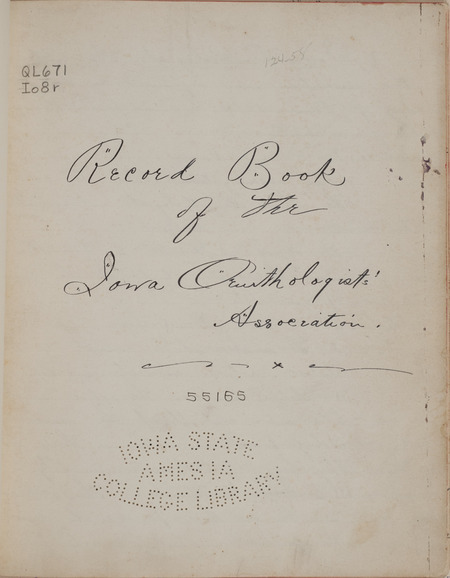 QL671
Io8r
Record Book
of the
Iowa Ornithologists'
Association.
55165
IOWA STATE
AMES IA
COLLEGE LIBRARY